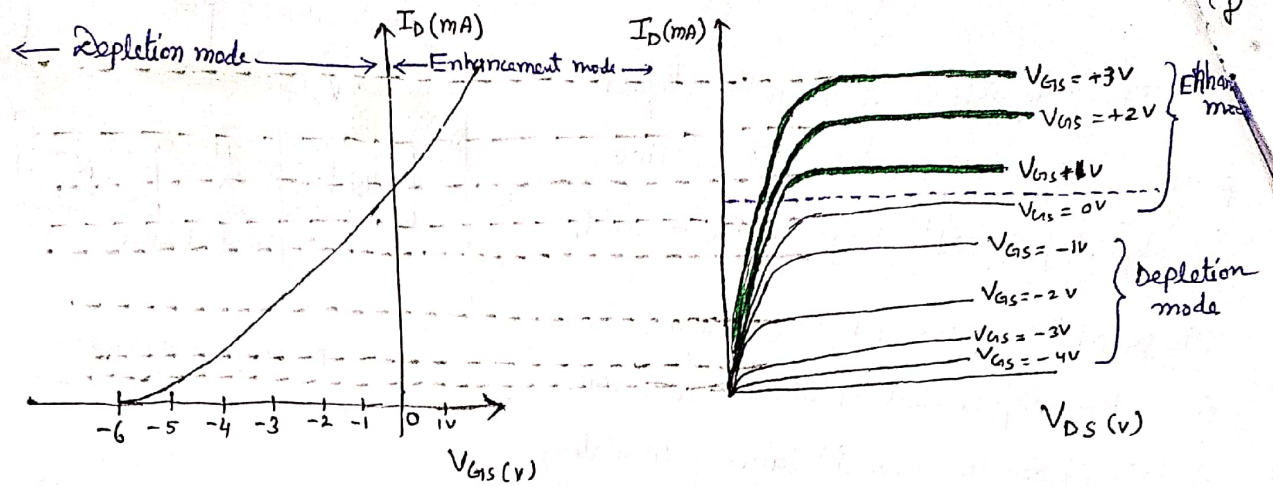 Depletion mode
I_D (mA)
Enhancement mode
-6 -5 -4 -3 -2 -1 0 1V
V_GS (V)
I_D (mA)
V_GS = +3V
V_GS = +2V
V_GS +1V
V_GS = 0V
V_GS = -1V
V_GS = -2V
V_GS = -3V
V_GS = -4V
Depletion
mode
V_DS (V)